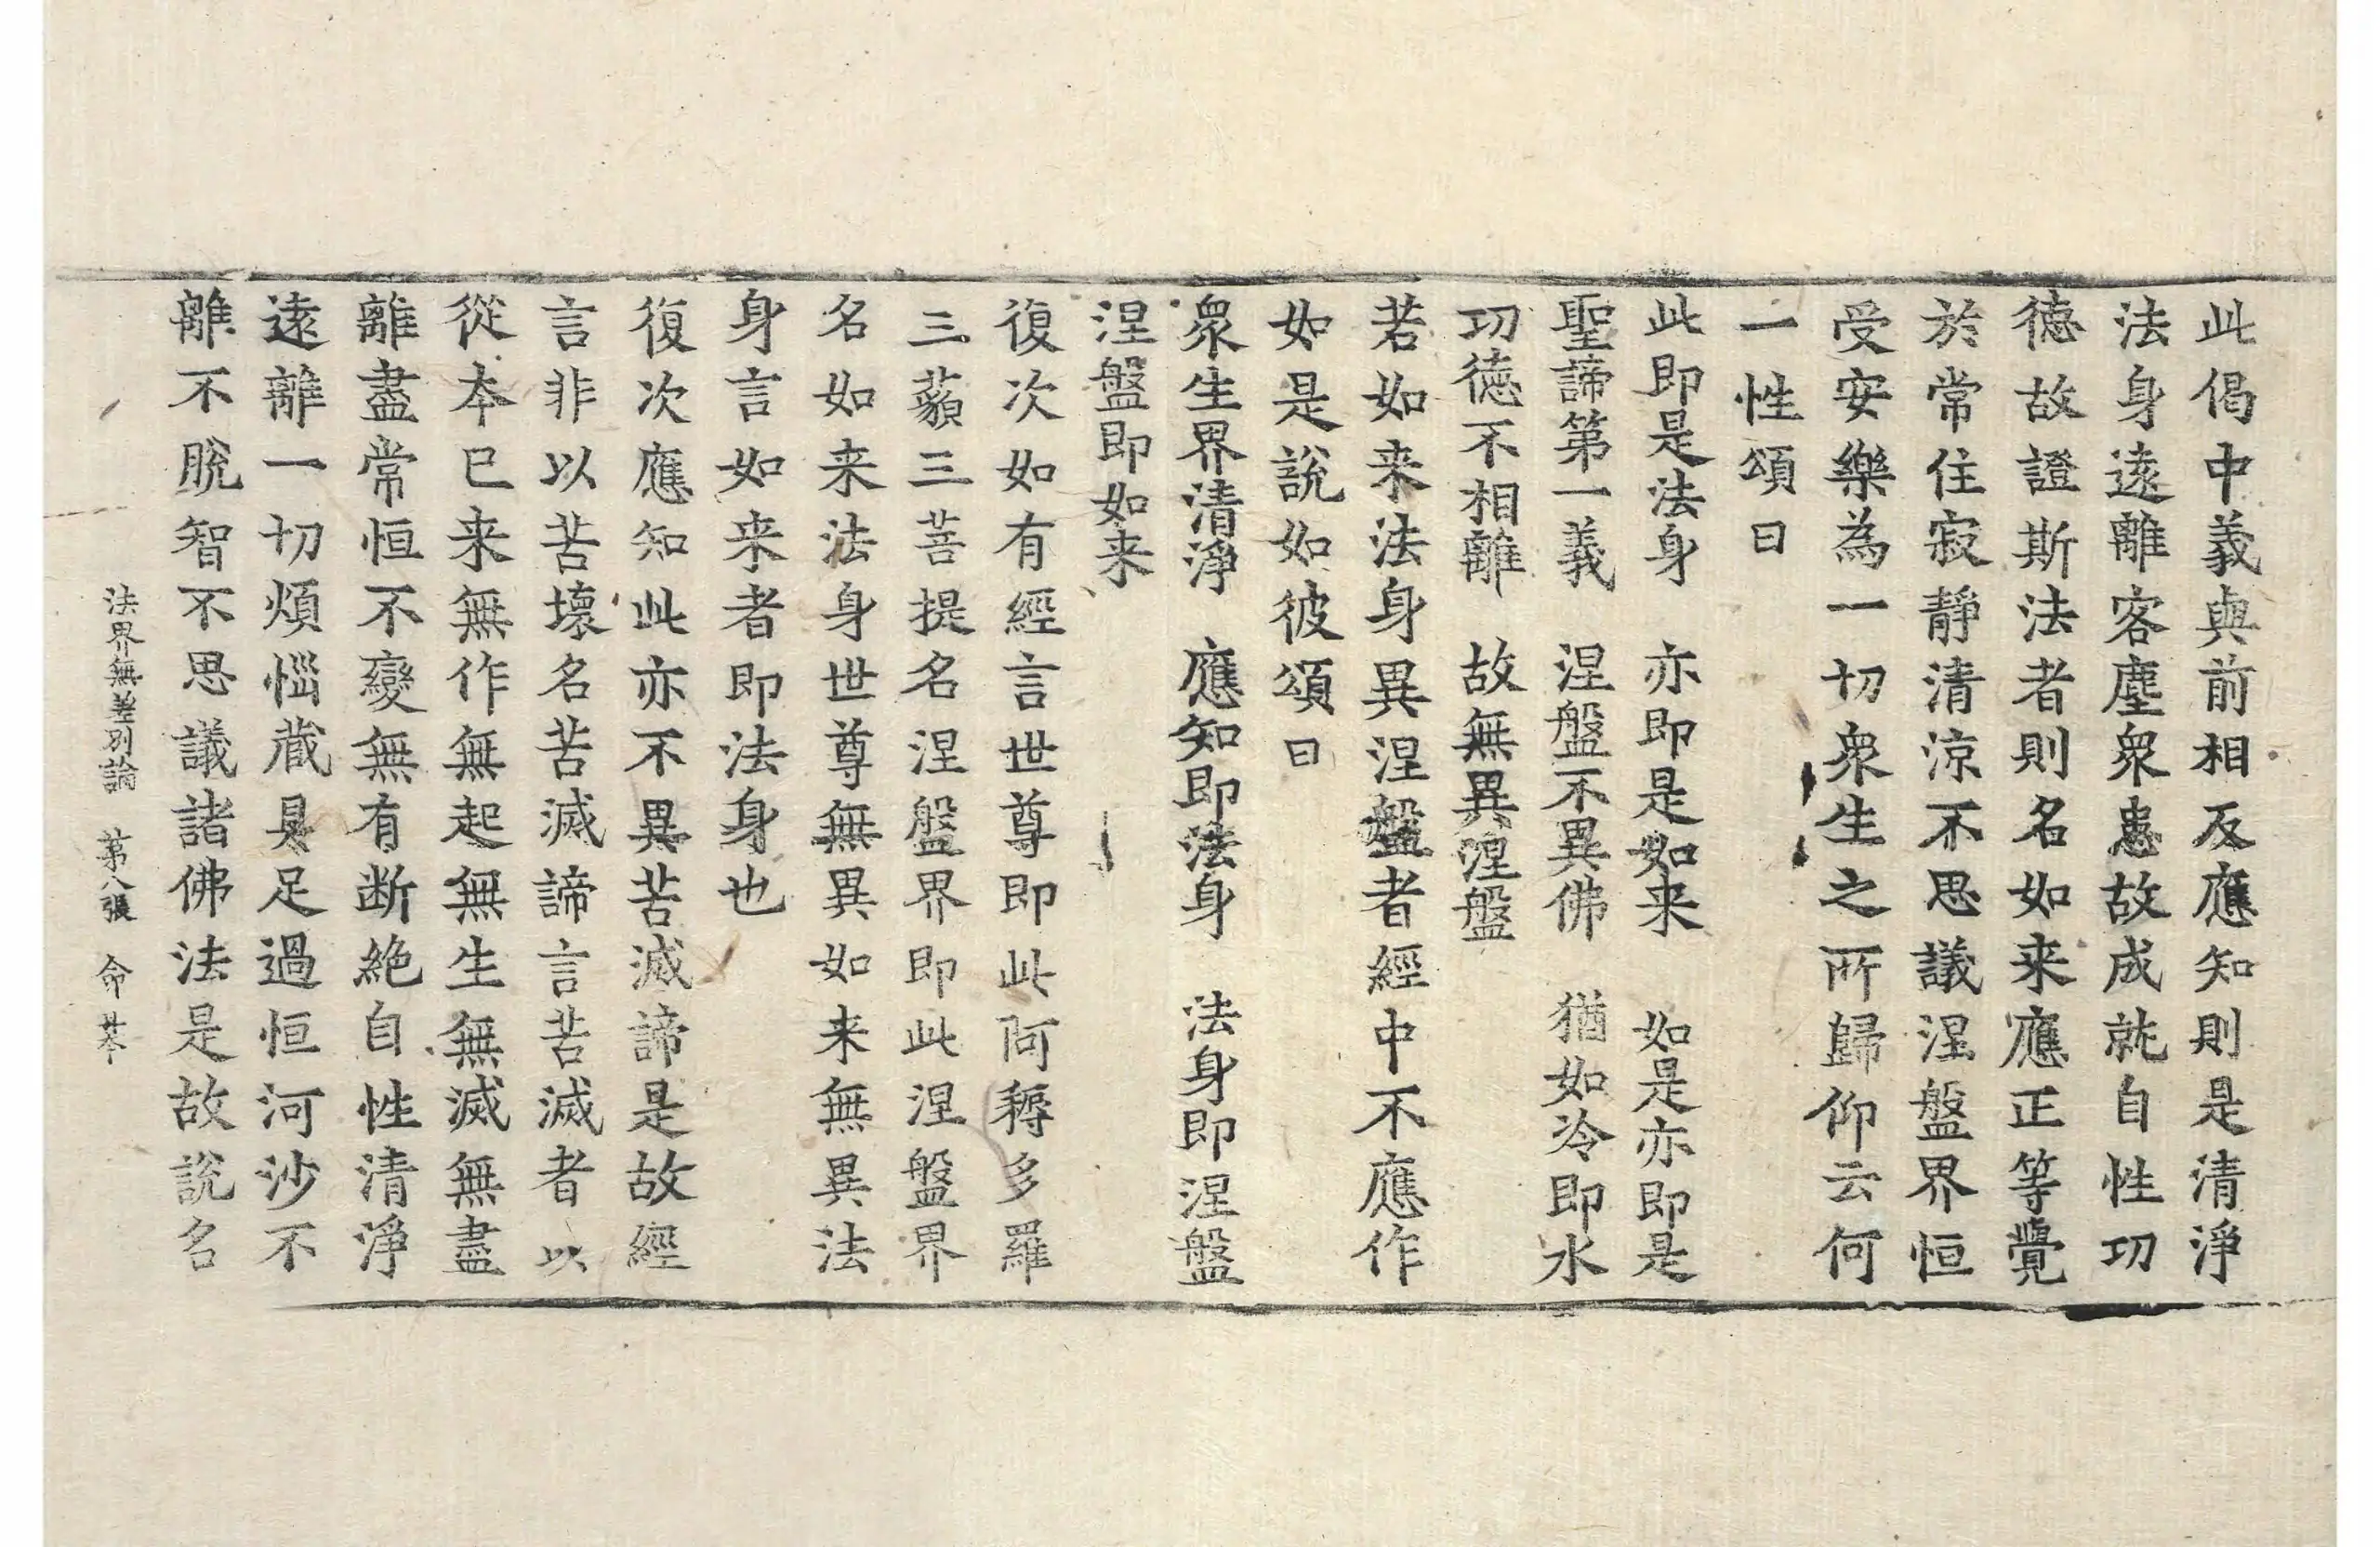 此偈中義與前相反應知則是清淨
法身遠離客塵衆患故成就自性功
德故證斯法者則名如来應正等覺
於常住寂靜清涼不思議涅盤界恒
受安樂為一切衆生之所歸仰云何
一性頌曰
此即是法身　亦即是如来　如是亦即是
聖諦第一義　涅盤不異佛　猶如冷即水
功德不相離　故無異涅盤
若如来法身異涅盤者經中不應作
如是說如彼頌曰
衆生界清淨　應知即法身　法身即涅盤
涅盤即如来
復次如有經言世尊即此阿耨多羅
三藐三菩提名涅盤界即此涅盤界
名如来法身世尊無異如来無異法
身言如来者即法身也
復次應知此亦不異苦滅諦是故經
言非以苦壞名苦滅諦言苦滅者以
從本已来無作無起無生無滅無盡
離盡常恒不變無有断絶自性清淨
遠離一切煩惱藏具足過恒河沙不
離不脫智不思議諸佛法是故說名
法界無差別論　第八張　命